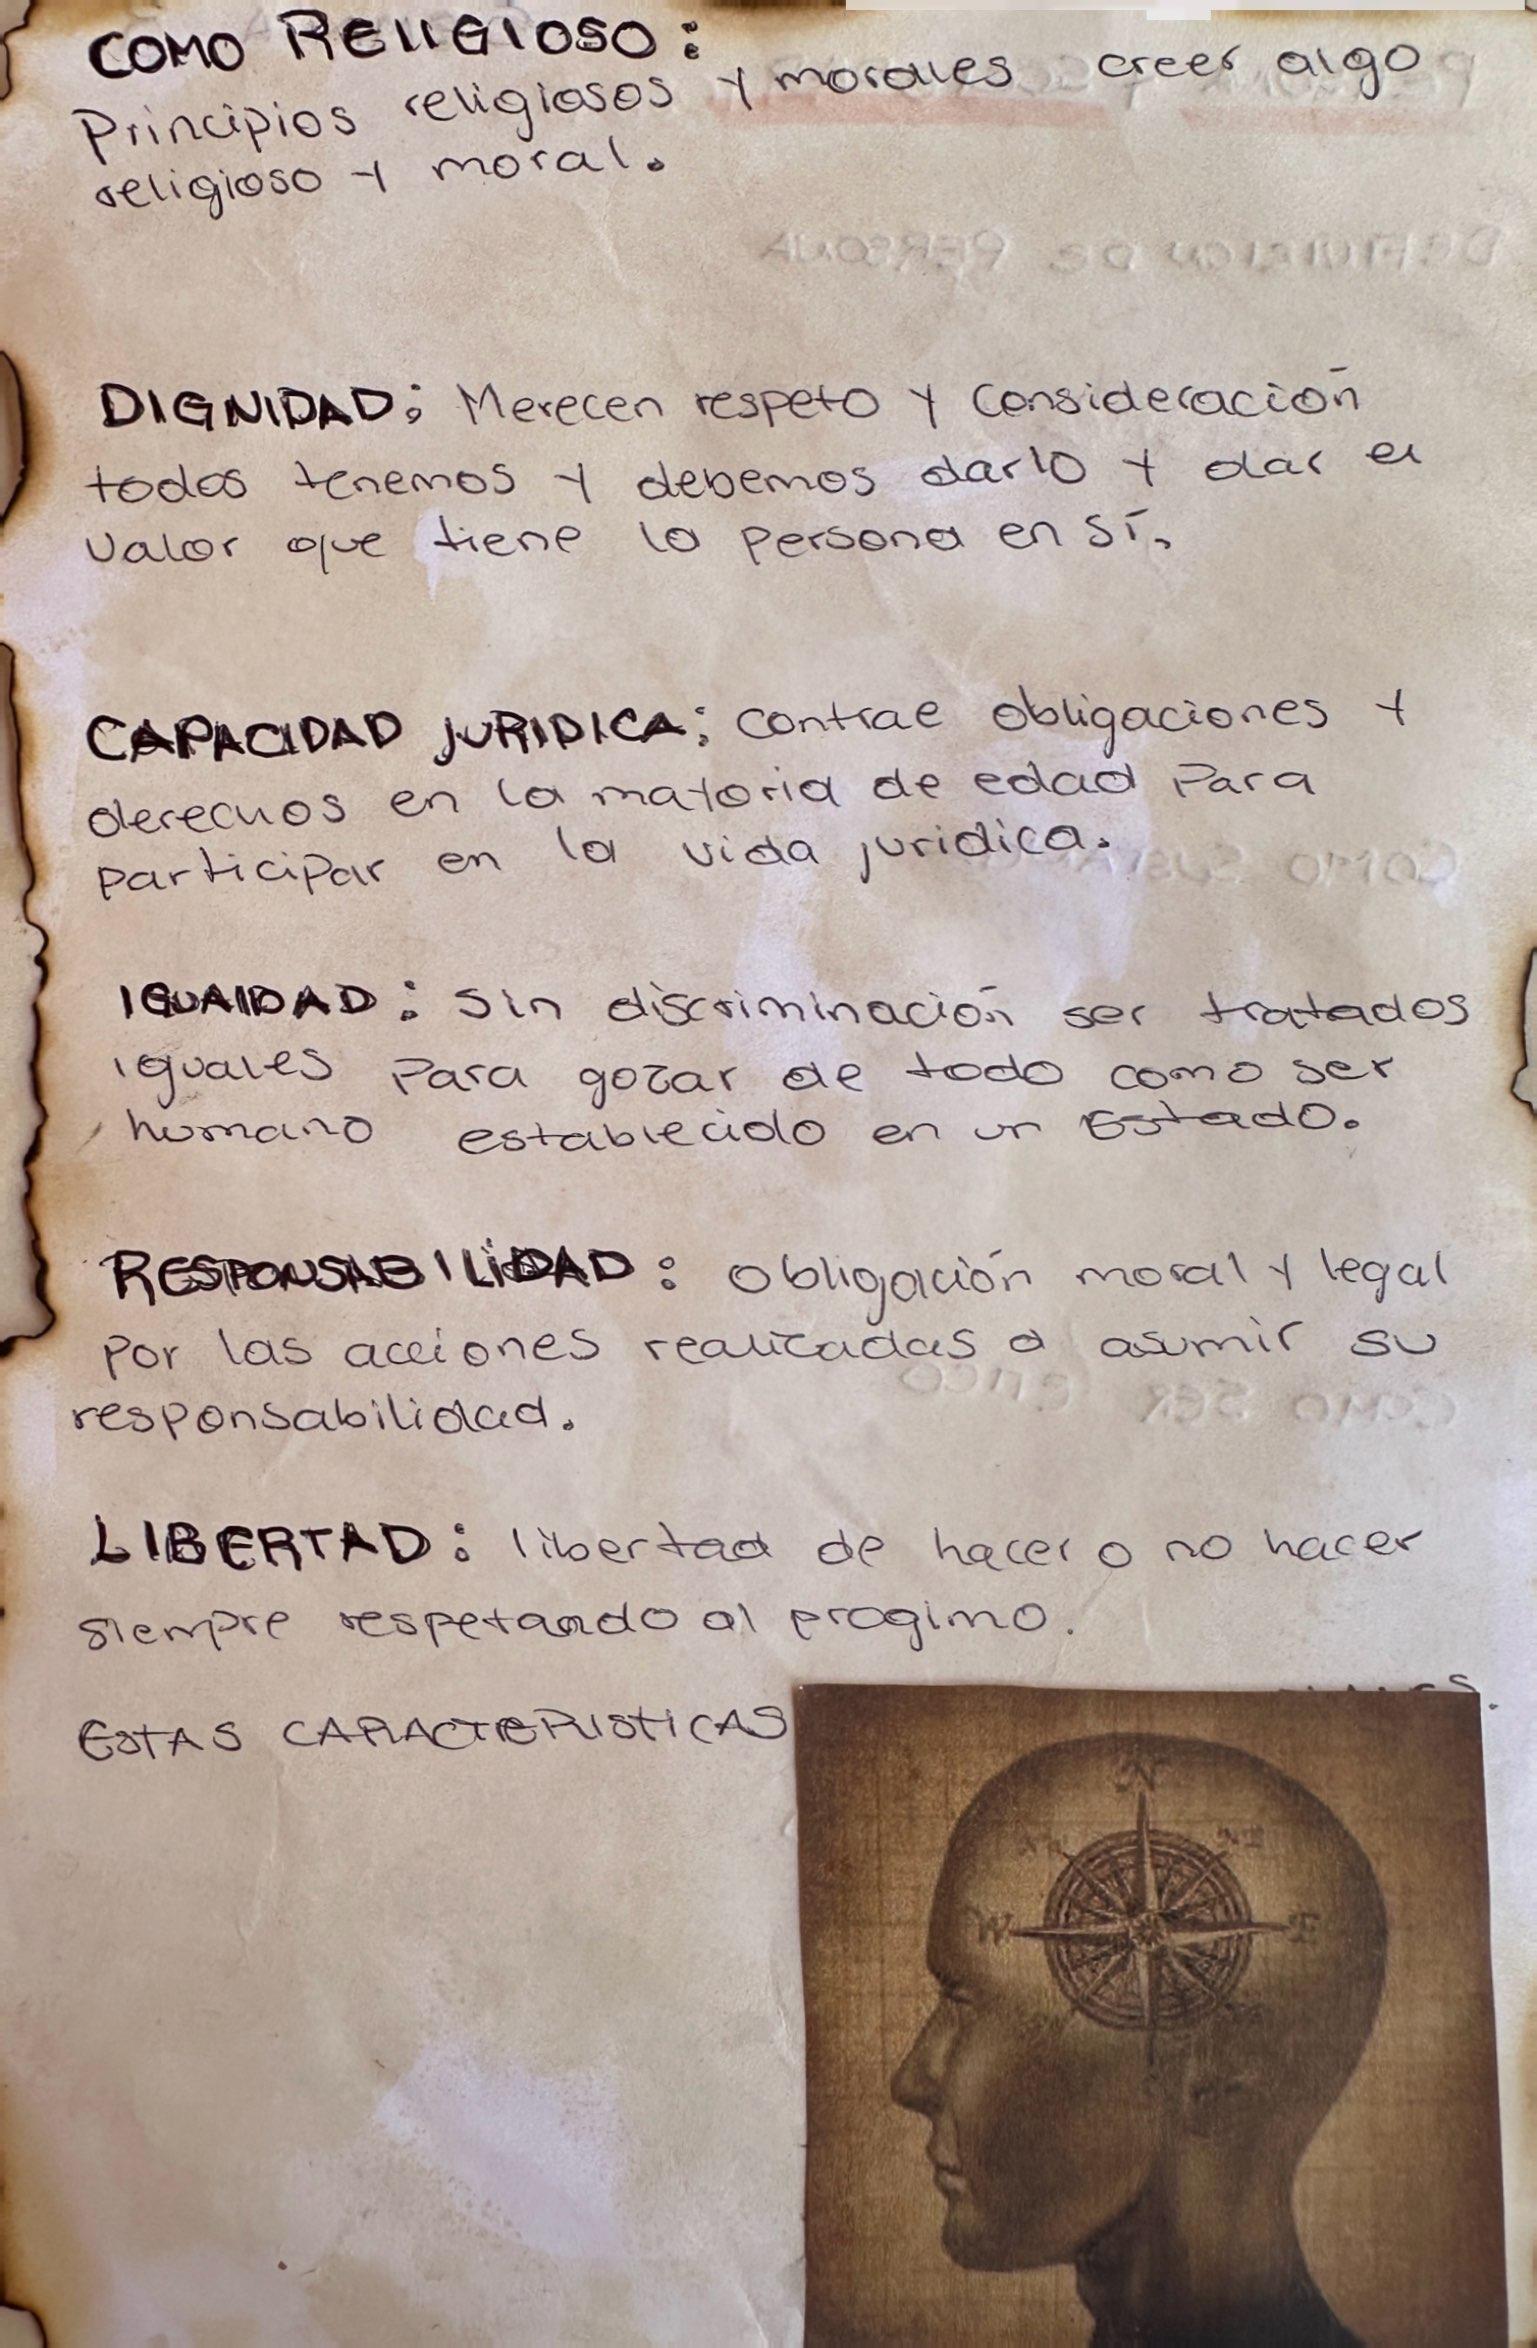 COMO RELIGIOSO:
Principios religiosos y morales creer algo
religioso y moral.
DIGNIDAD: Merecen respeto y consideración
todos tenemos y debemos darlo y dar el
valor que tiene la persona en sí.
CAPACIDAD JURIDICA: contrae obligaciones y
derechos en la mayoria de edad para
participar en la vida juridica.
IGUALDAD: sin discriminación ser tratados
iguales para gozar de todo como ser
humano establecido en un Estado.
RESPONSABILIDAD: obligación moral y legal
por las acciones realizadas a asumir su
responsabilidad.
LIBERTAD: libertad de hacer o no hacer
siempre respetando al progimo.
ESTAS CARACTERISTICAS
N
NE
W
E